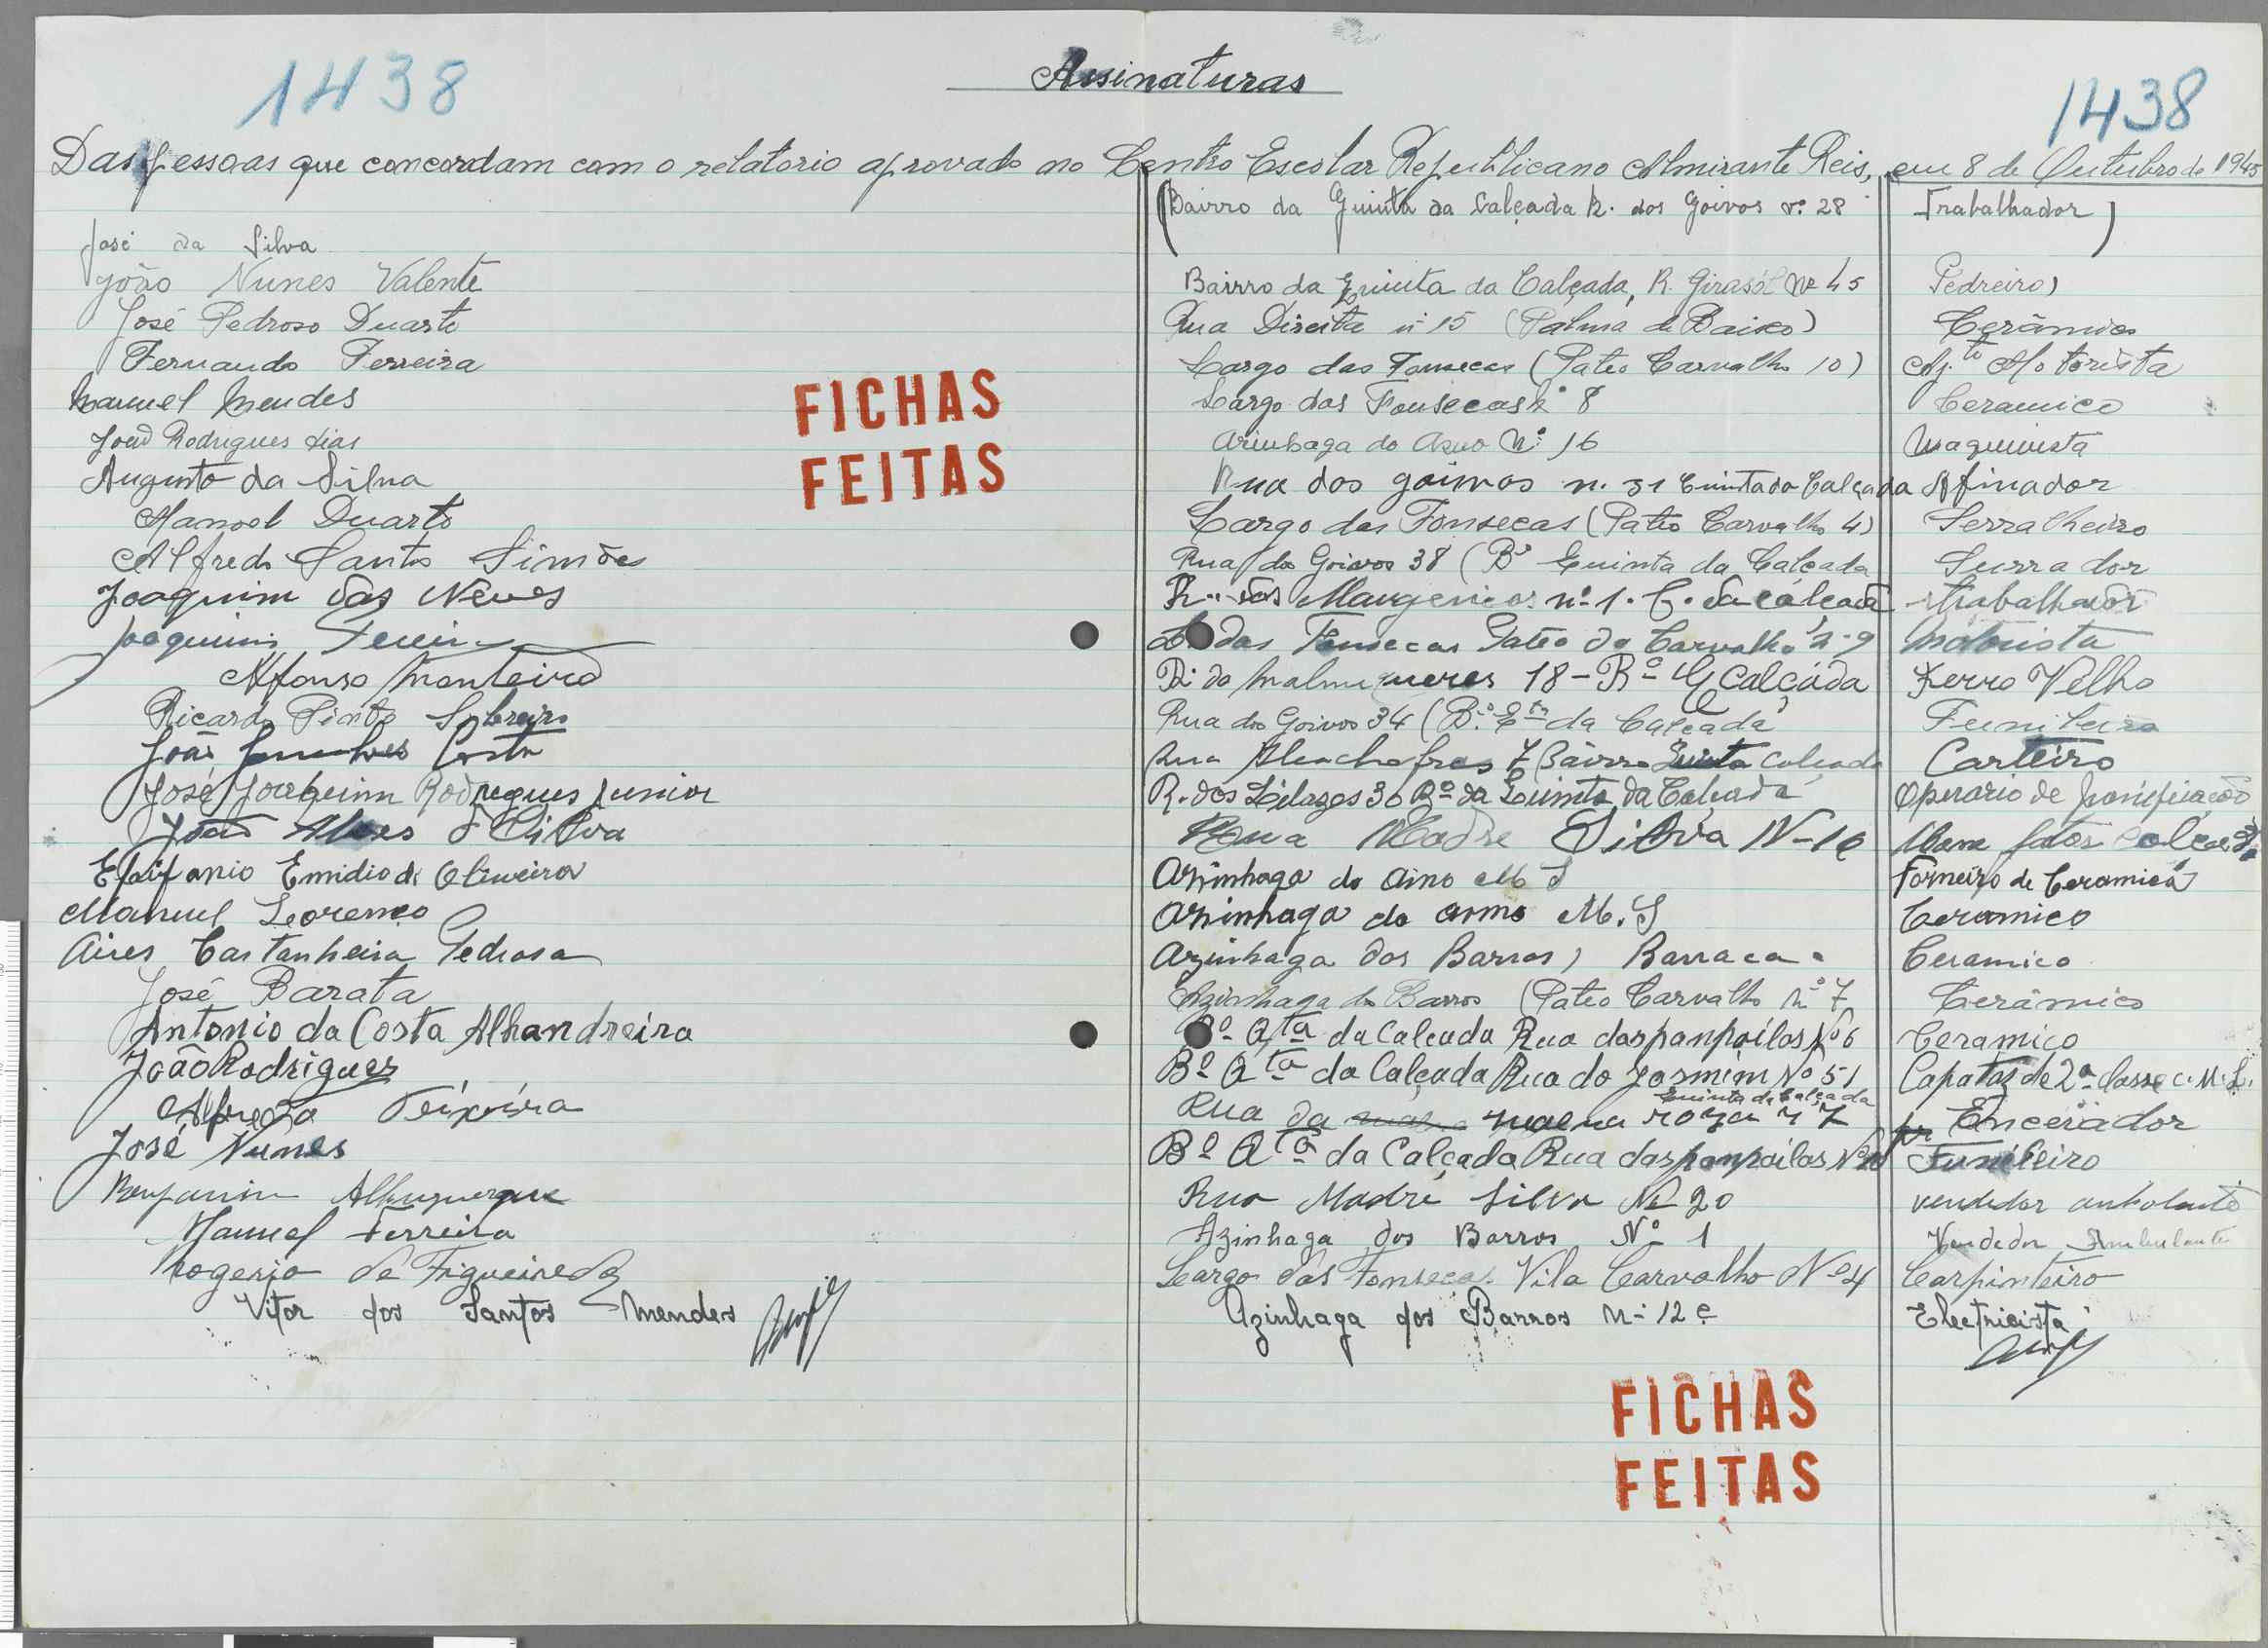 1438
Assinaturas
1438
Das pessoas que concordam com o relatorio aprovado no Centro Escolar Republicano Almirante Reis, em 8 de Outubro de 1945
(Bairro da Quinta da Calçada R. dos Goivos nº 28 Trabalhador)
José da Silva
João Nunes Valente Bairro da Quinta da Calçada, R. Girasol Nº 45 Pedreiro)
José Pedroso Duarte Rua Direita nº 15 (Palma de Baixo) Cerâmico
Fernando Ferreira Largo das Fonsecas (Pateo Carvalho 10) Aj.te Motorista
Manuel Mendes Largo das Fonsecas nº 8 Ceramico
João Rodrigues Dias Azinhaga do Asno Nº 16 Maquinista
Augusto da Silva Rua dos goivos n. 31 Quinta da Calçada Afinador
Manoel Duarte Largo das Fonsecas (Pateo Carvalho 4) Serralheiro
Alfredo Santos Simões Rua dos Goivos 38 (Bº Quinta da Calçada Surrador
Joaquim das Neves R. das nº 1. Q. da calçada trabalhador
Joaquim L. das Fonsecas Pateo do Carvalho nº 9 Motorista
Afonso Monteiro R. do Malmequeres 18 - Bº Q Calçada Ferro Velho
Ricardo Pinto Sobreiro Rua dos Goivos 34 (Bº Qta da Calçada Funileiro
João Gonçalves Costa Rua 7 Bairro Quinta Calçada Carteiro
José Joaquim Rodrigues Junior R. dos Lilazes 30 Bº da Quinta da Calçada Operario de panificação
João Alves d Silva Rua Madre Silva Nº 10
Epifanio Emidio de Oliveira Azinhaga do Asno M. S Forneiro de Ceramica
Manuel Lorenço Azinhaga do asno M. S Ceramico
Aires Castanheira Pedrosa Azinhaga dos Barros, Barraca Ceramico
José Barata Azinhaga do Barros (Pateo Carvalho Nº 7 Cerâmico
Antonio da Costa Alhandreira Bº Qta da Calçada Rua das panpoilas Nº 6 Ceramico
João Rodrigues Bº Qta da Calçada Rua do Jasmim Nº 51 Capataz de 2ª classe C. M. L.
Quinta da Calçada
Alfredo Teixeira Rua da malva roza 7 Encerador
José Nunes Bº Qta da Calçada Rua das panpoilas Funileiro
Benjamim Albuquerque Rua Madre Silva Nº 20 vendedor anbolante
Manuel Ferreira Azinhaga dos Barros Nº 1 Vendedor Ambulante
Rogerio de Figueiredo Largo das Fonsecas Vila Carvalho Nº 4 Carpinteiro
Vitor dos Santos Mendes Azinhaga dos Barros nº 12 c Electricista
FICHAS
FEITAS
FICHAS
FEITAS